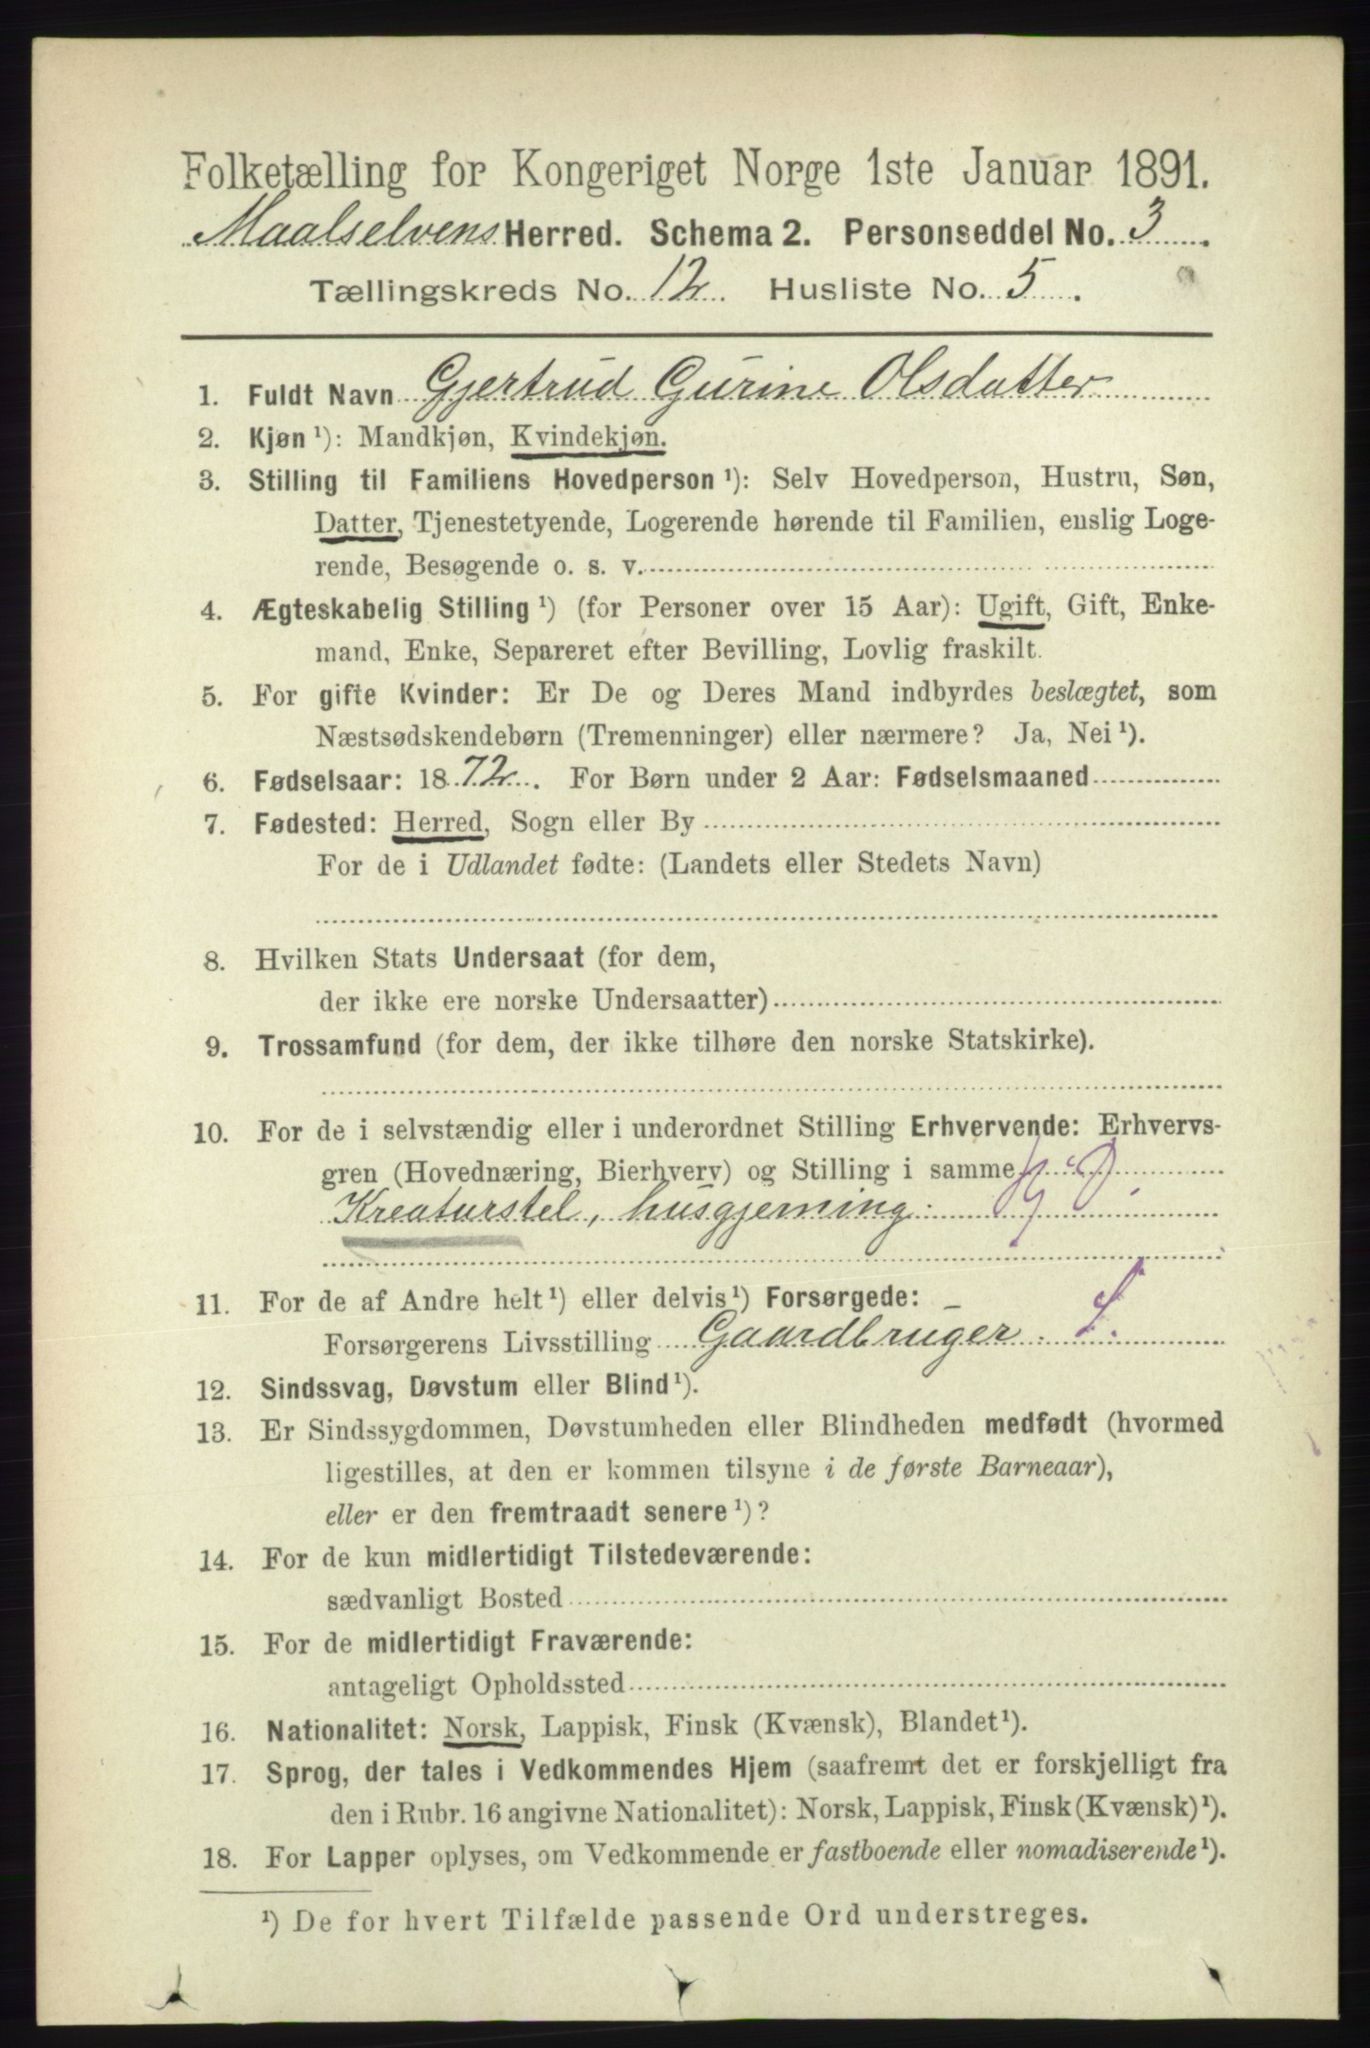 Folketælling for Kongeriget Norge 1ste Januar 1891.
Maalselvens Herred. Schema 2. Personseddel No. 3.
Tællingskreds No. 12. Husliste No. 5.
1. Fuldt Navn Gjertrud Gurine Olsdatter
2. Kjøn ¹): Mandkjøn, Kvindekjøn.
3. Stilling til Familiens Hovedperson ¹): Selv Hovedperson, Hustru, Søn,
Datter, Tjenestetyende, Logerende hørende til Familien, enslig Loge-
rende, Besøgende o. s. v.
4. Ægteskabelig Stilling ¹) (for Personer over 15 Aar): Ugift, Gift, Enke-
mand, Enke, Separeret efter Bevilling, Lovlig fraskilt.
5. For gifte Kvinder: Er De og Deres Mand indbyrdes beslægtet, som
Næstsødskendebørn (Tremenninger) eller nærmere? Ja, Nei ¹).
6. Fødselsaar: 1872. For Børn under 2 Aar: Fødselsmaaned
7. Fødested: Herred, Sogn eller By
For de i Udlandet fødte: (Landets eller Stedets Navn)
8. Hvilken Stats Undersaat (for dem,
der ikke ere norske Undersaatter)
9. Trossamfund (for dem, der ikke tilhøre den norske Statskirke).
10. For de i selvstændig eller i underordnet Stilling Erhvervende: Erhvervs-
gren (Hovednæring, Bierhverv) og Stilling i samme
Kreaturstel, husgjerning.
11. For de af Andre helt ¹) eller delvis ¹) Forsørgede:
Forsørgerens Livsstilling Gaardbruger.
12. Sindssvag, Døvstum eller Blind ¹).
13. Er Sindssygdommen, Døvstumheden eller Blindheden medfødt (hvormed
ligestilles, at den er kommen tilsyne i de første Barneaar),
eller er den fremtraadt senere ¹)?
14. For de kun midlertidigt Tilstedeværende:
sædvanligt Bosted
15. For de midlertidigt Fraværende:
antageligt Opholdssted
16. Nationalitet: Norsk, Lappisk, Finsk (Kvænsk), Blandet ¹).
17. Sprog, der tales i Vedkommendes Hjem (saafremt det er forskjelligt fra
den i Rubr. 16 angivne Nationalitet): Norsk, Lappisk, Finsk (Kvænsk) ¹).
18. For Lapper oplyses, om Vedkommende er fastboende eller nomadiserende ¹).
¹) De for hvert Tilfælde passende Ord understreges.